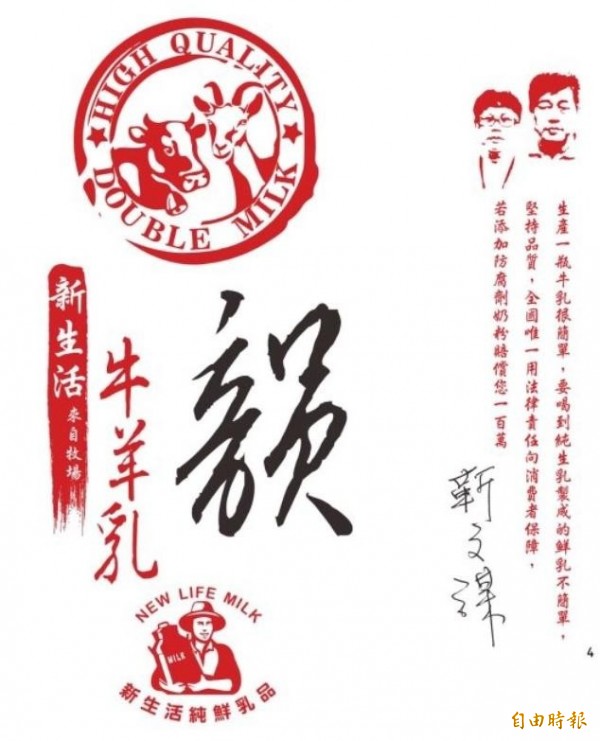 HIGH QUALITY
DOUBLE MILK
生產一瓶牛乳很簡單，要喝到純生乳製成的鮮乳不簡單，
堅持品質，全國唯一用法律責任向消費者保障，
若添加防腐劑奶粉賠償您一百萬
韻
牛羊乳
新生活
來自牧場
NEW LIFE MILK
MILK
新生活純鮮乳品
4
自由時報